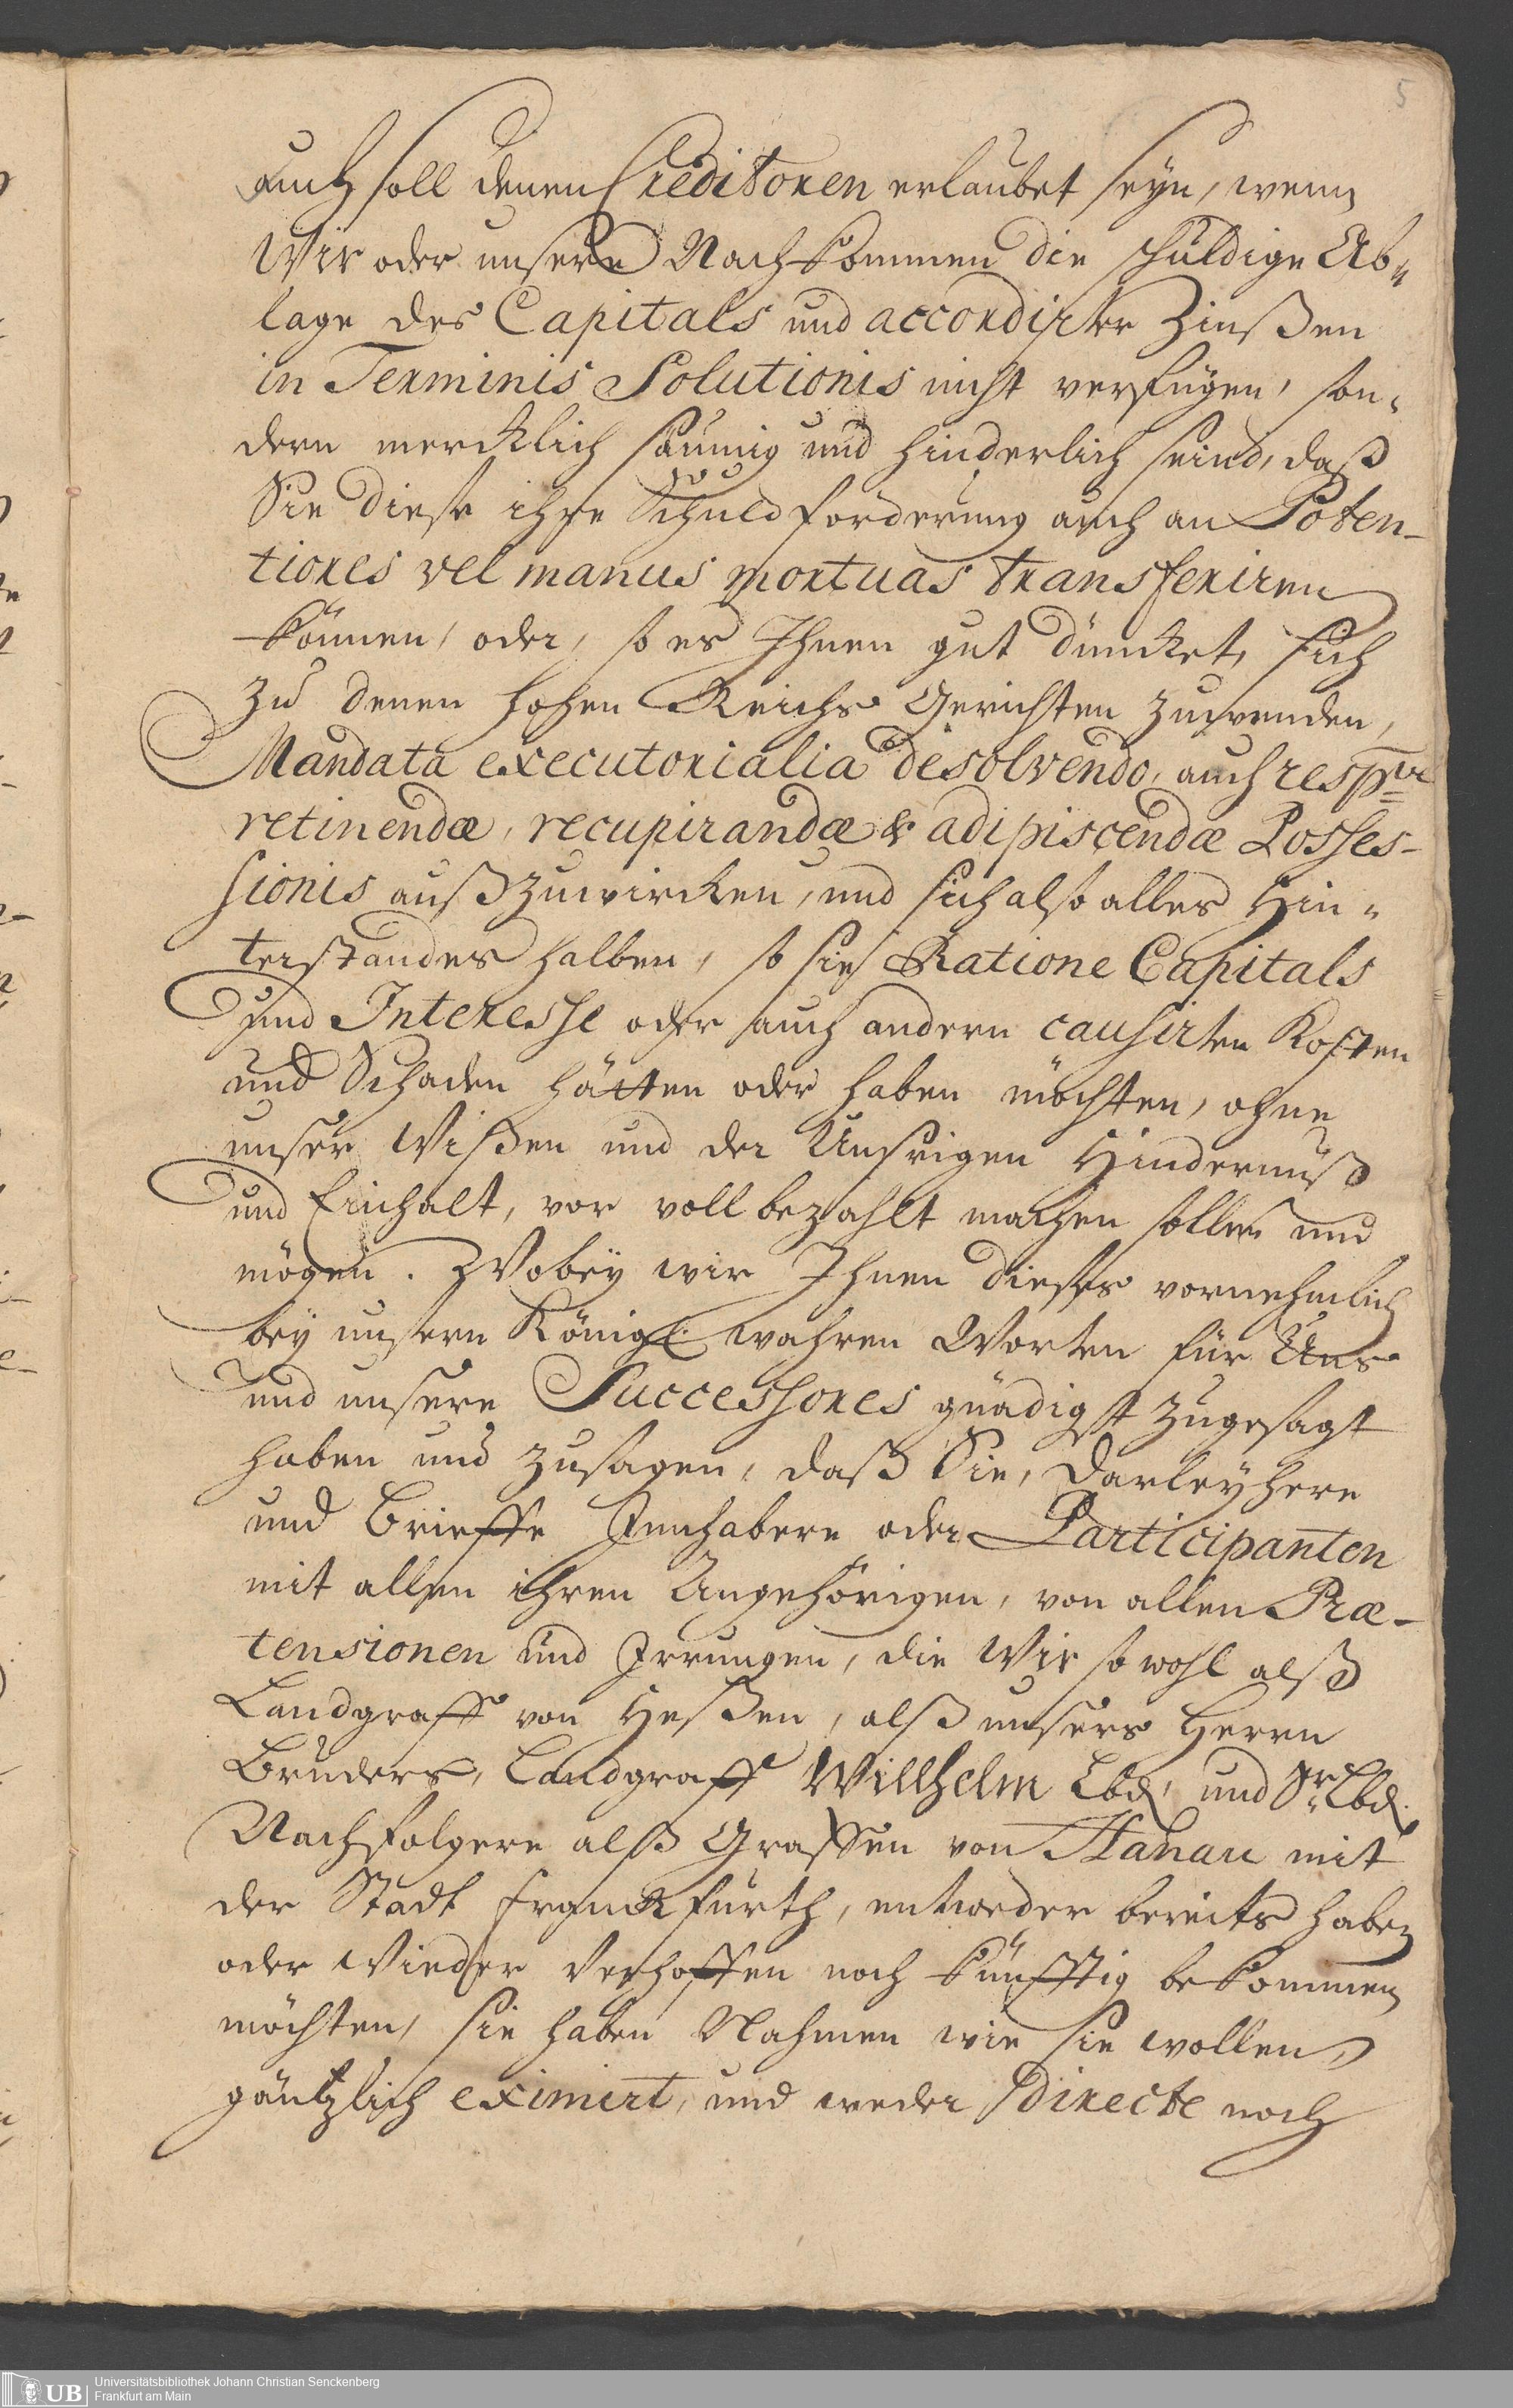 5
auch soll denen Creditoren erlaubet seyn, wenn
Wir oder unsere Nachkommen die schuldige Ab-
lage des Capitals und accordirter Zinßen
in Terminis Solutionis nicht verfügen, son-
dern mercklich säumig und hinderlich seind, daß
Sie diese ihre Schuldforderung auch an Poten-
tiores vel manus mortuas transferiren
können, oder, so es Ihnen gut düncket, sich
zu denen hohen Reichs Gerichten zuwenden,
Mandata executorialia de solvendo, auch respve
retinendæ, recupirandæ & adipiscendæ Posses-
sionis außzuwircken, und sich also alles Hin-
terstandes halben, so sie Ratione Capitals
und Interesse oder auch andern causirten Kosten
und Schaden hätten oder haben möchten, ohne
unser Wißen und der Unsrigen Hindernüß
und Einhalt, vor voll bezahlt machen sollen und
mögen. Wobey wir Ihnen dieses vornehmlich
bey unsern Königl. wahren Worten für Uns
und unsere Successores gnädigst zugesagt
haben und zusagen, daß Sie, Darleyhere
und Brieffe Innhabere oder Participanten
mit allen ihren Angehörigen, von allen Præ-
tensionen und Irrungen, die Wir so wohl alß
Landgraff von Heßen, alß unsers Herrn
Bruders, Landgraff Willhelm Lbd, und Sr Lbd.
Nachfolgere alß Graffen von Hanau mit
der Stadt Franckfurth, entweder bereits haben
oder Wieder Verhoffen noch künfftig bekommen
möchten, sie haben Nahmen wie sie wollen,
gäntzlich eximirt, und weder directe noch
UB
Universitätsbibliothek Johann Christian Senckenberg
Frankfurt am Main